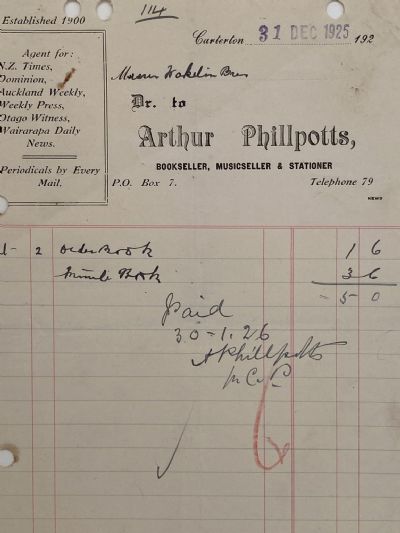 Established 1900
114
Carterton 31 DEC 1925 192
Agent for:
N.Z. Times,
Dominion,
Auckland Weekly,
Weekly Press,
Otago Witness,
Wairarapa Daily
News.
Periodicals by Every
Mail.
Messrs Wakelin Bros
Dr. to
Arthur Phillpotts,
BOOKSELLER, MUSICSELLER & STATIONER
P.O. Box 7. Telephone 79
NEWS
2 Order Book 1 6
Minute Book 3 6
5 0
Paid
30-1.26
A Phillpotts